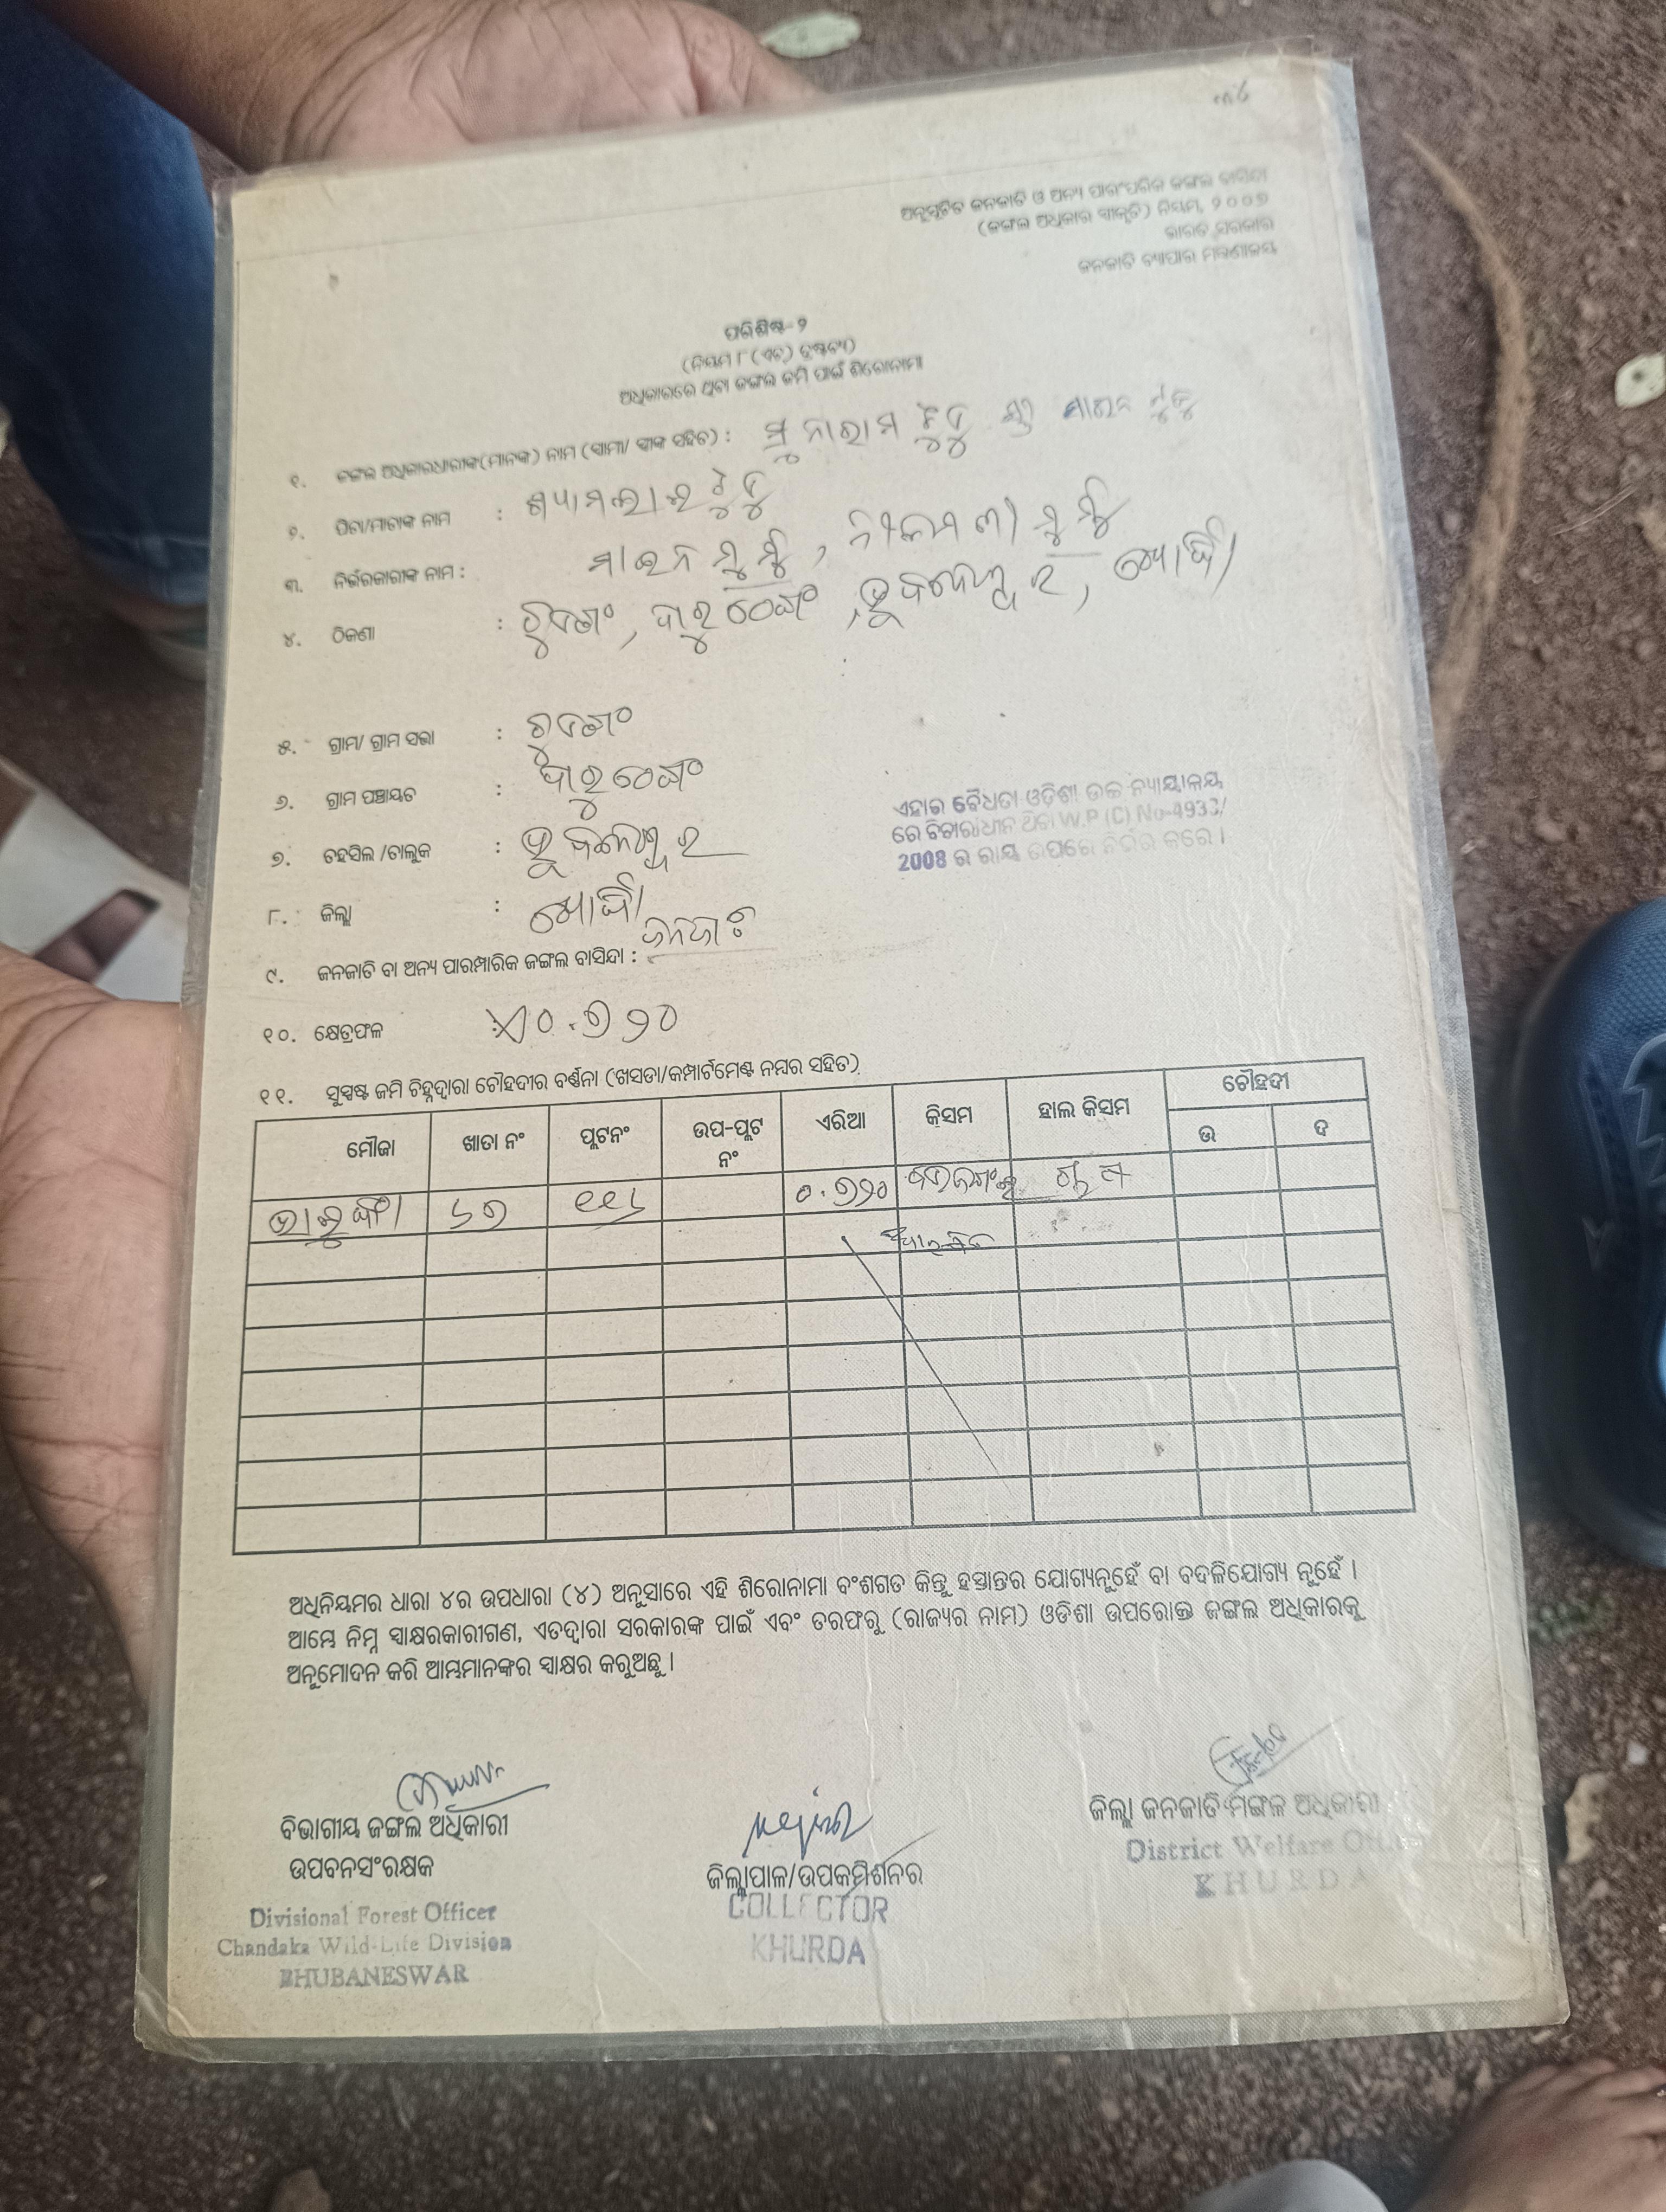 ଅନୁସୂଚିତ ଜନଜାତି ଓ ଅନ୍ୟ ପାରଂପରିକ ଜଙ୍ଗଲ ବାସିନ୍ଦା
(ଜଙ୍ଗଲ ଅଧିକାର ସ୍ୱୀକୃତି) ନିୟମ, ୨୦୦୭
ଭାରତ ସରକାର
ଜନଜାତି ବ୍ୟାପାର ମନ୍ତ୍ରଣାଳୟ
ପରିଶିଷ୍ଟ-୨
(ନିୟମ ୮ (ଏଚ୍) ଦ୍ରଷ୍ଟବ୍ୟ)
ଅଧିକାରରେ ଥିବା ଜଙ୍ଗଲ ଜମି ପାଇଁ ଶିରୋନାମା
୧. ଜଙ୍ଗଲ ଅଧିକାରଧାରୀଙ୍କ(ମାନଙ୍କ) ନାମ (ସ୍ୱାମୀ/ ସ୍ତ୍ରୀଙ୍କ ସହିତ) : ଟୁଡୁ
୨. ପିତା/ମାତାଙ୍କ ନାମ : ଶ୍ୟାମଲାଲ ଟୁଡୁ
୩. ନିର୍ଭରକାରୀଙ୍କ ନାମ : ମୁର୍ମୁ, ମୁର୍ମୁ
୪. ଠିକଣା : ଦାରୁଠେଙ୍ଗ, ଭୁବନେଶ୍ୱର, ଖୋର୍ଦ୍ଧା
୫. ଗ୍ରାମ/ ଗ୍ରାମ ସଭା :
୬. ଗ୍ରାମ ପଞ୍ଚାୟତ : ଦାରୁଠେଙ୍ଗ
୭. ତହସିଲ /ତାଲୁକ : ଭୁବନେଶ୍ୱର
ଏହାର ବୈଧତା ଓଡ଼ିଶା ଉଚ୍ଚ ନ୍ୟାୟାଳୟ
ରେ ବିଚାରାଧୀନ ଥିବା W.P (C) No-4933/
2008 ର ରାୟ ଉପରେ ନିର୍ଭର କରେ ।
୮. ଜିଲ୍ଲା : ଖୋର୍ଦ୍ଧା
୯. ଜନଜାତି ବା ଅନ୍ୟ ପାରମ୍ପାରିକ ଜଙ୍ଗଲ ବାସିନ୍ଦା : ଜନଜାତି
୧୦. କ୍ଷେତ୍ରଫଳ ଏ୦.୭୨୦
୧୧. ସୁସ୍ପଷ୍ଟ ଜମି ଚିହ୍ନଦ୍ୱାରା ଚୌହଦୀର ବର୍ଣ୍ଣନା (ଖସଡା/କମ୍ପାର୍ଟମେଣ୍ଟ ନମ୍ବର ସହିତ)
ମୌଜା ଖାତା ନଂ ପ୍ଲଟନଂ ଉପ-ପ୍ଲଟ ନଂ ଏରିଆ କିସମ ହାଲ କିସମ ଚୌହଦୀ
ଉ ଦ
୬୭ ୧୧୬ ୦.୭୨୦
ଅଧିନିୟମର ଧାରା ୪ର ଉପଧାରା (୪) ଅନୁସାରେ ଏହି ଶିରୋନାମା ବଂଶଗତ କିନ୍ତୁ ହସ୍ତାନ୍ତର ଯୋଗ୍ୟନୁହେଁ ବା ବଦଳିଯୋଗ୍ୟ ନୁହେଁ ।
ଆମ୍ଭେ ନିମ୍ନ ସ୍ୱାକ୍ଷରକାରୀଗଣ, ଏତଦ୍ୱାରା ସରକାରଙ୍କ ପାଇଁ ଏବଂ ତରଫରୁ (ରାଜ୍ୟର ନାମ) ଓଡିଶା ଉପରୋକ୍ତ ଜଙ୍ଗଲ ଅଧିକାରକୁ
ଅନୁମୋଦନ କରି ଆମ୍ଭମାନଙ୍କର ସ୍ୱାକ୍ଷର କରୁଅଛୁ ।
ବିଭାଗୀୟ ଜଙ୍ଗଲ ଅଧିକାରୀ
ଉପବନସଂରକ୍ଷକ
Divisional Forest Officer
Chandaka Wild-Life Division
BHUBANESWAR
ଜିଲ୍ଲାପାଳ/ଉପକମିଶନର
COLLECTOR
KHURDA
ଜିଲ୍ଲା ଜନଜାତି ମଙ୍ଗଳ ଅଧିକାରୀ
District Welfare
KHURDA